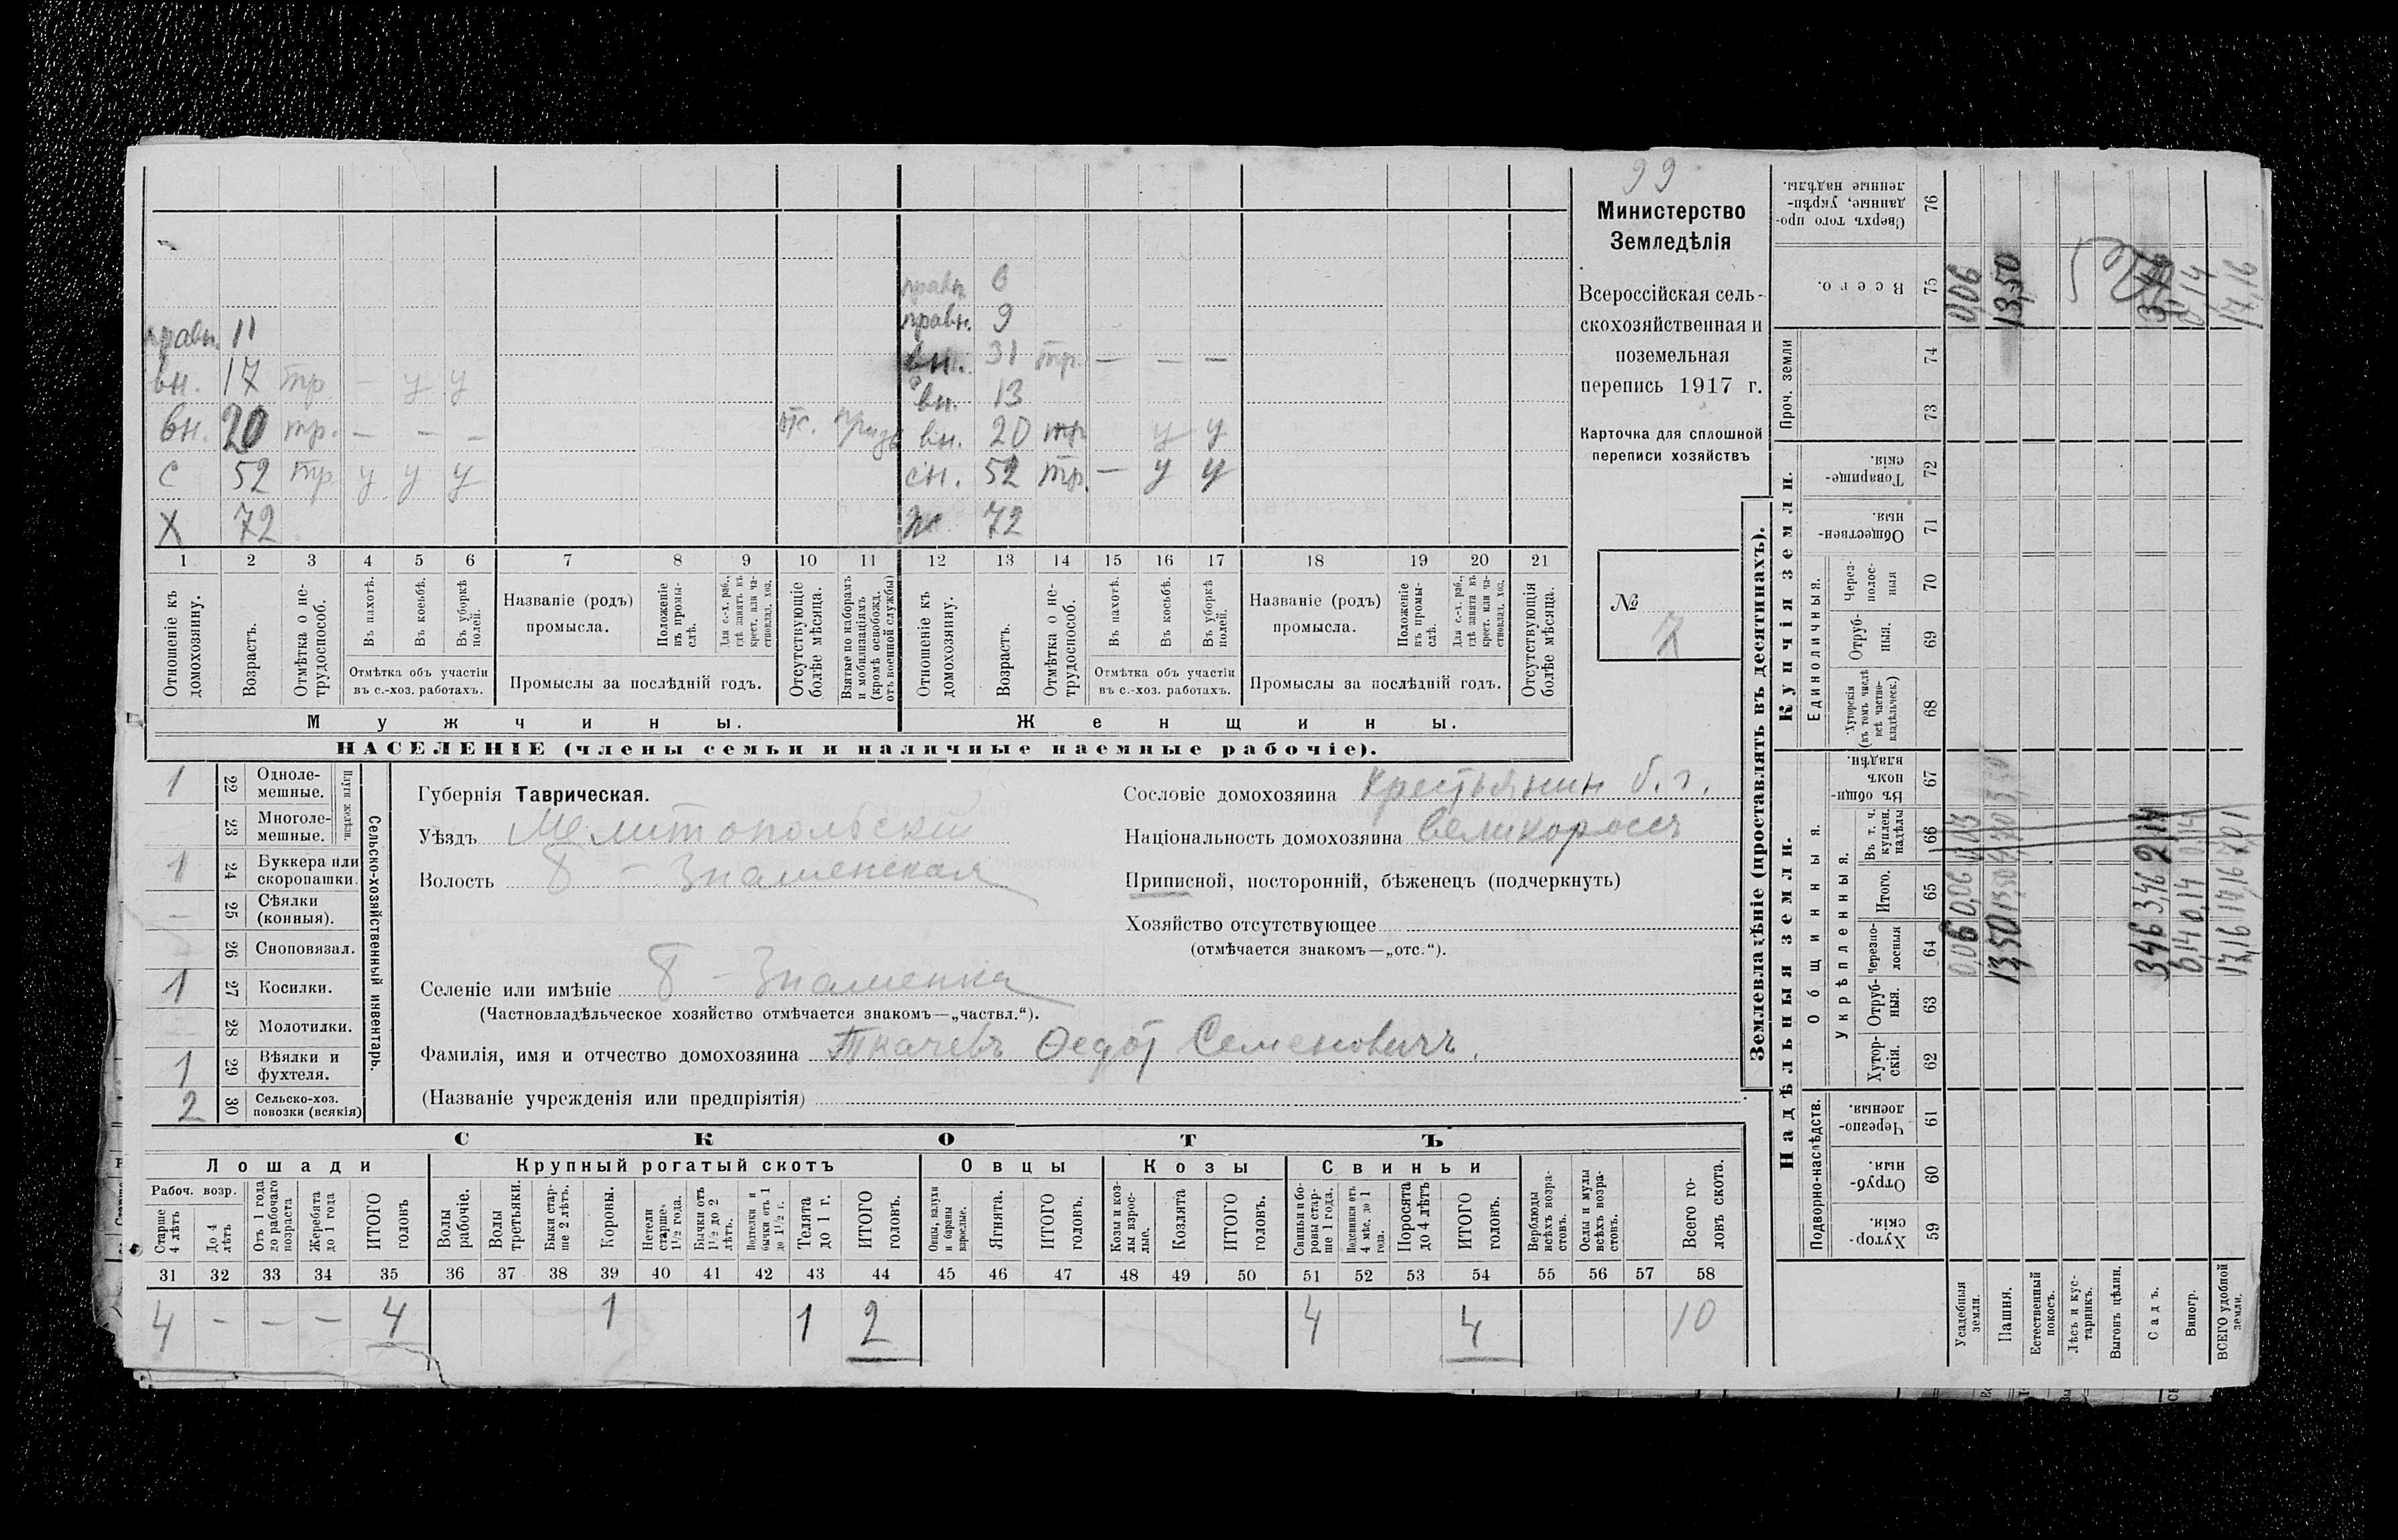 99
Министерство
Земледѣлія
Всероссійская сель-
скохозяйственная и
поземельная
перепись 1917 г.
Карточка для сплошной
переписи хозяйствъ
№
7
правн. 6
правн. 9
правн. 11
вн. 31 тр. — — —
вн. 17 тр. — у у
вн. 13
вн. 20 тр. — — —
отс.
вн. 20 тр. у у
с 52 тр. у у у
сн. 52 тр. — у у
х 72
ж 72
1 2 3 4 5 6 7 8 9 10 11 12 13 14 15 16 17 18 19 20 21
Отношеніе къ домохозяину.
Возрастъ.
Отмѣтка о не-трудоспособ.
Въ пахотѣ.
Въ косьбѣ.
Въ уборкѣ полей.
Отмѣтка объ участіи
въ с.-хоз. работахъ.
Названіе (родъ)
промысла.
Положеніе въ промы-слѣ.
Для с.-х. раб., гдѣ занятъ въ крест. или ча-стновлад. хоз.
Промыслы за послѣдній годъ.
Отсутствующіе болѣе мѣсяца.
Взятые по наборамъ и мобилизаціямъ (кромѣ освобожд. отъ военной службы)
Отношеніе къ домохозяину.
Возрастъ.
Отмѣтка о не-трудоспособ.
Въ пахотѣ.
Въ косьбѣ.
Въ уборкѣ полей.
Отмѣтка объ участіи
въ с.-хоз. работахъ.
Названіе (родъ)
промысла.
Положеніе въ промы-слѣ.
Для с.-х. раб., гдѣ занята въ крест. или ча-стновлад. хоз.
Промыслы за послѣдній годъ.
Отсутствующія болѣе мѣсяца.
Мужчины.
Женщины.
НАСЕЛЕНІЕ (члены семьи и наличные наемные рабочіе).
Сельско-хозяйственный инвентарь.
Плуги желѣзн.
1 22 Одноле-мешные.
23 Многоле-мешные.
1 24 Буккера или скоропашки.
— 25 Сѣялки (конныя).
26 Сноповязал.
1 27 Косилки.
28 Молотилки.
1 29 Вѣялки и фухтеля.
2 30 Сельско-хоз. повозки (всякія)
Губернія Таврическая.
Уѣздъ Мелитопольскій
Волость Б - Знаменская
Селеніе или имѣніе Б - Знаменка
(Частновладѣльческое хозяйство отмѣчается знакомъ—„частвл.“).
Фамилія, имя и отчество домохозяина Ткачевъ Ѳедотъ Семеновичъ.
(Названіе учрежденія или предпріятія)
Сословіе домохозяина крестьянин б. г.
Національность домохозяина великороссъ
Приписной, посторонній, бѣженецъ (подчеркнуть)
Хозяйство отсутствующее
(отмѣчается знакомъ—„отс.“).
СКОТЪ
Лошади
Крупный рогатый скотъ
Овцы
Козы
Свиньи
Рабоч. возр.
Старше 4 лѣтъ
До 4 лѣтъ
Отъ 1 года до рабочаго возраста
Жеребята до 1 года
ИТОГО головъ
Волы рабочіе.
Волы третьяки.
Быки стар-ше 2 лѣтъ.
Коровы.
Нетели старше 1½ года.
Бычки отъ 1½ до 2 лѣтъ.
Телки и бычки отъ 1 до 1½ г.
Телята до 1 г.
ИТОГО головъ.
Овцы, валухи и бараны взрослые.
Ягнята.
ИТОГО головъ.
Козы и коз-лы взрос-лые.
Козлята
ИТОГО головъ.
Свиньи и бо-ровы стар-ше 1 года.
Подсвинки отъ 4 мѣс. до 1 года.
Поросята до 4 лѣтъ
ИТОГО головъ.
Верблюды всѣхъ возра-стовъ.
Ослы и мулы всѣхъ возра-стовъ.
Всего го-ловъ скота.
31 32 33 34 35 36 37 38 39 40 41 42 43 44 45 46 47 48 49 50 51 52 53 54 55 56 57 58
4 — — — 4 1 1 2 4 4 10
Землевладѣніе (проставлять въ десятинахъ).
Надѣльныя земли.
Купчія земли.
Проч. земли
Подворно-наслѣдств.
Общинныя.
Укрѣпленныя.
Единоличныя.
Хутор-скія. 59
Отруб-ныя. 60
Черезпо-лосныя. 61
Хутор-скія. 62
Отруб-ныя. 63
Черезпо-лосныя 64
Итого. 65
Въ т. ч. куплен. надѣлы 66
Въ общин-номъ владѣн. 67
Хуторскія (въ томъ числѣ всѣ частно-владѣльческ.) 68
Отруб-ныя. 69
Через-полос-ныя 70
Обществен-ныя. 71
Товарище-скія. 72
73
74
Всего. 75
Сверхъ того про-данные, укрѣп-ленные надѣлы. 76
Усадебныя земли. 0,06 0,06 0,03 0,06
Пашня. 13,50 13,50 13,50
Естественный покосъ.
Лѣсъ и кус-тарникъ.
Выгонъ цѣлин.
Садъ. 3,46 3,46 2,14
Виногр. 0,14 0,14 0,14
ВСЕГО удобной земли. 17,16 17,16 7,01 17,16